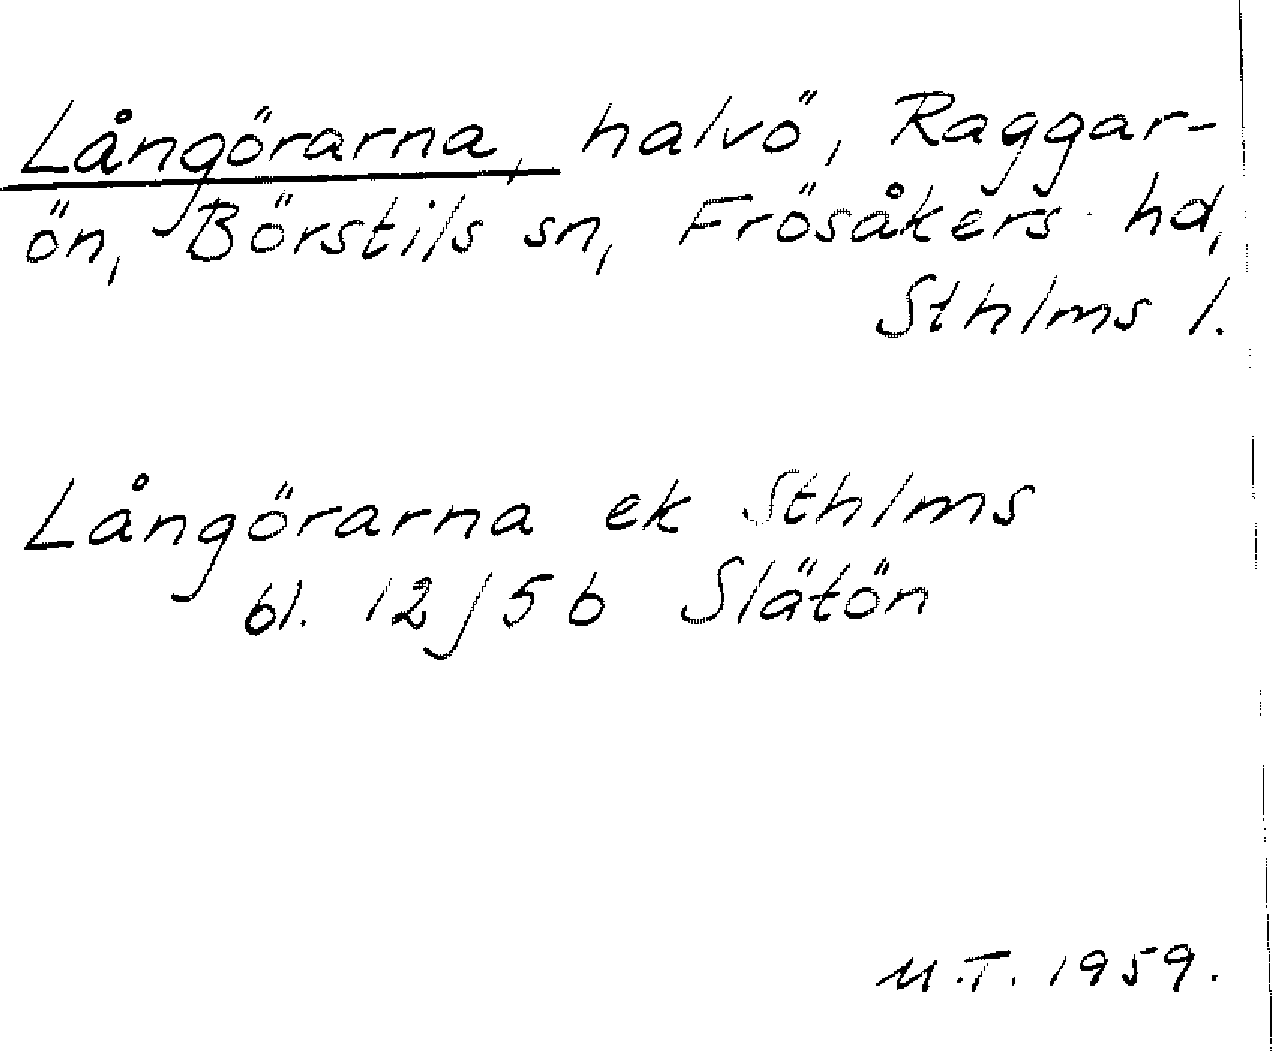 Långörarna, halvö, Raggar-
ön, Börstils sn, Frösåkers hd,
Sthlms l.
Långörarna ek Sthlms
bl. 12 J 5 b Slätön
M.T. 1959.